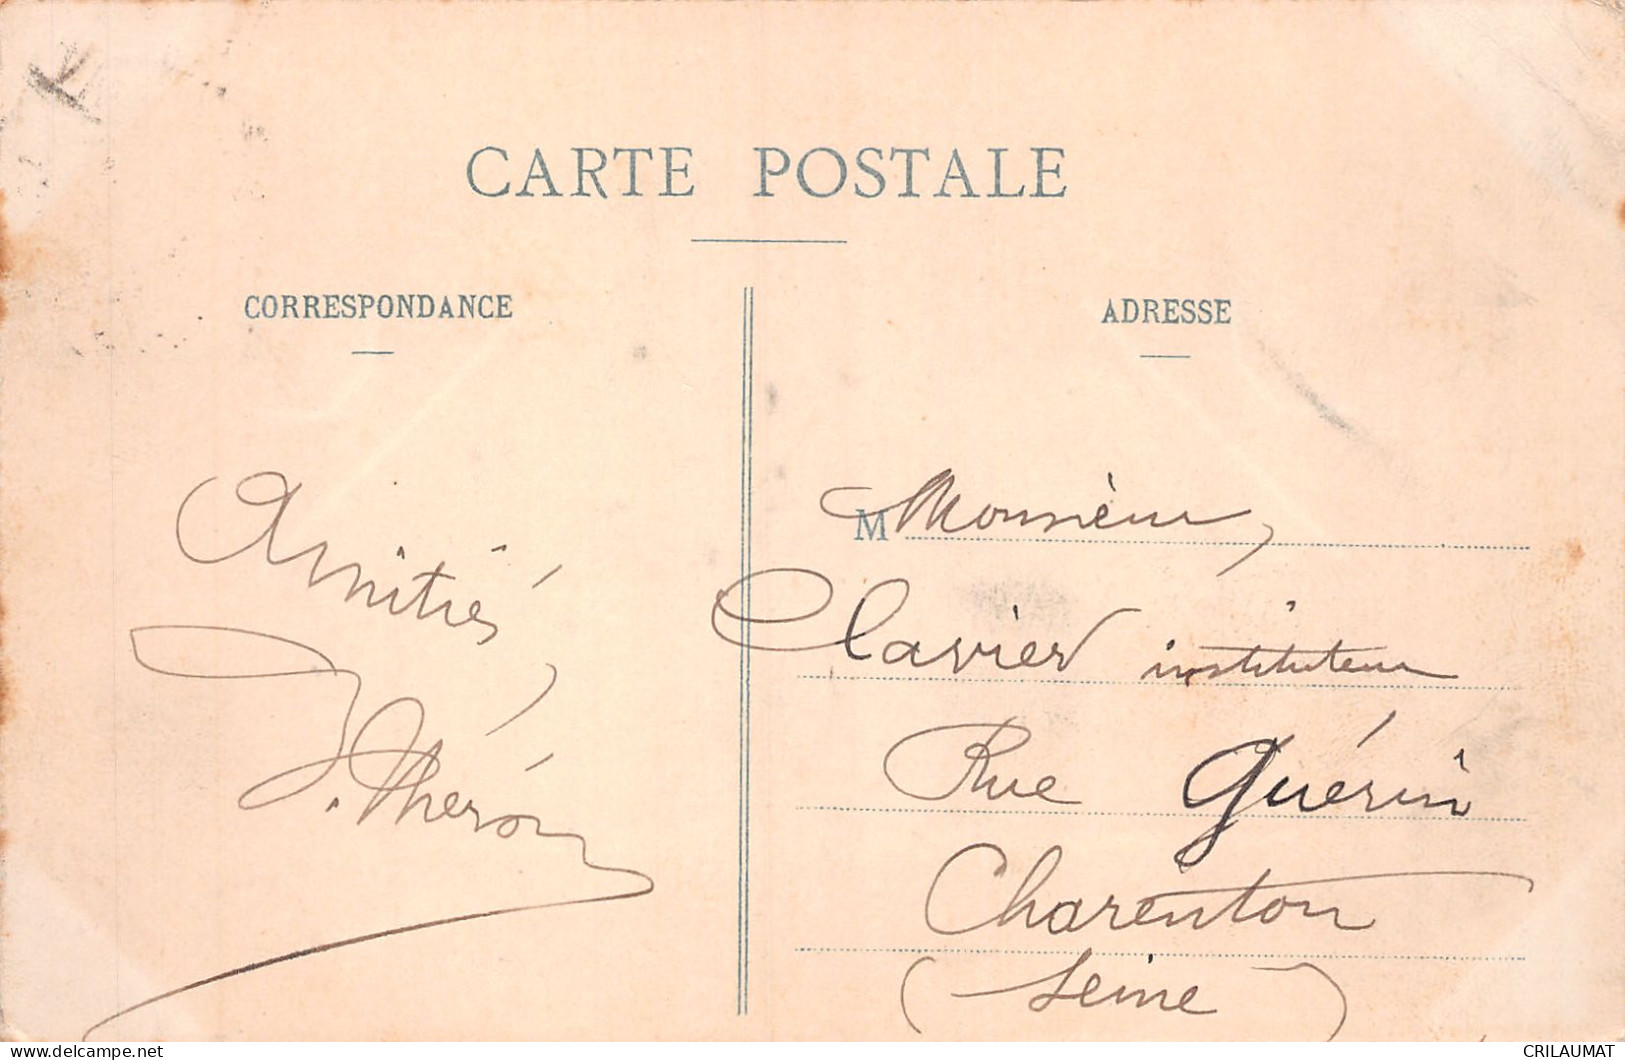 CARTE POSTALE
CORRESPONDANCE
Amitiés,
J. Théron
ADRESSE
M Monsieur,
Clavier instituteur
Rue Guérin
Charenton
(Seine)
CRILAUMAT